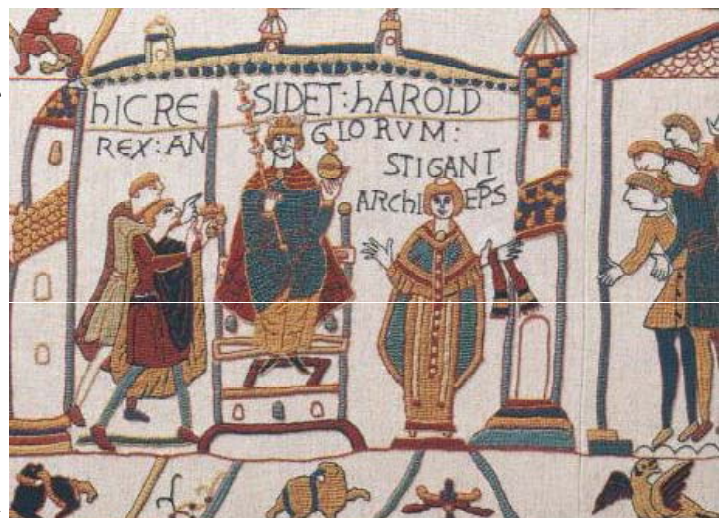 hIC RE SIDET : hAROLD
REX : AN GLORVM :
STIGANT
ARChI EPS